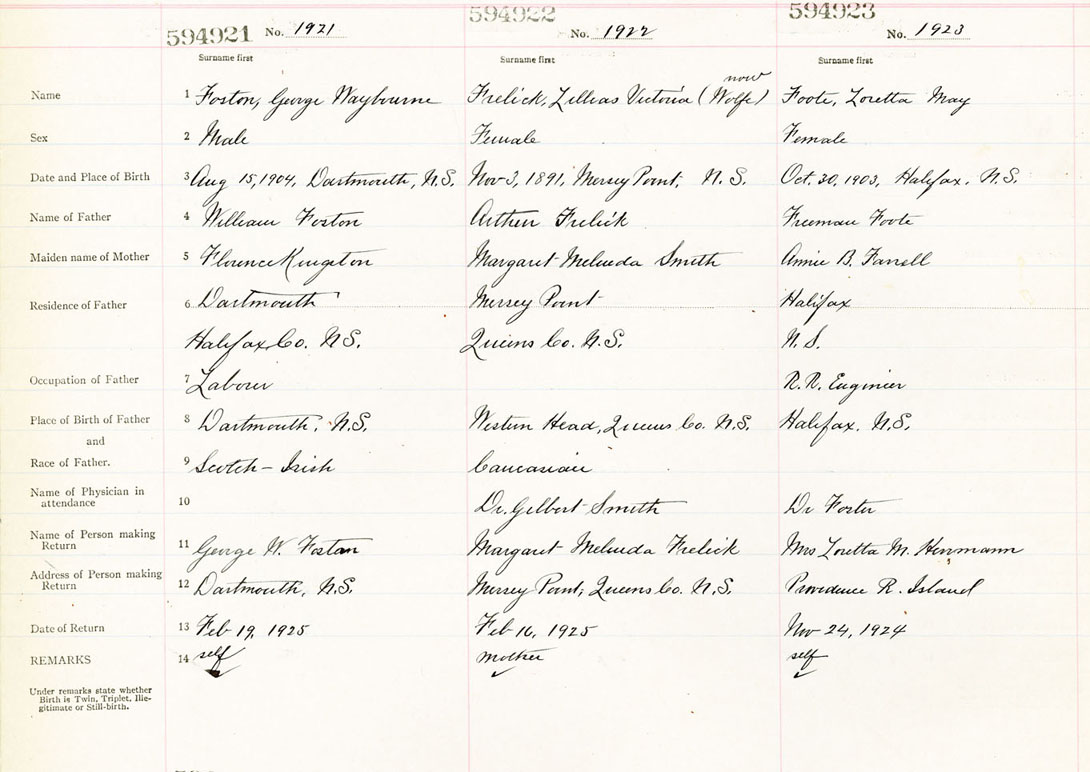 594921 No. 1921 594922 No. 1922 594923 No. 1923
Surname first Surname first Surname first
now
Name 1 Foston, George Waybourne Frelick, Lillias Victoria (Wolfe) Foote, Loretta May
Sex 2 Male Female Female
Date and Place of Birth 3 Aug 15, 1904, Dartmouth, N.S. Nov 3, 1891, Mersey Point, N.S. Oct. 30, 1903, Halifax, N.S.
Name of Father 4 William Foston Arthur Frelick Freeman Foote
Maiden name of Mother 5 Florence Kingston Margaret Melinda Smith Annie B. Farrell
Residence of Father 6 Dartmouth Mersey Point Halifax
Halifax Co. N.S. Queens Co. N.S. N.S.
Occupation of Father 7 Labour R.R. Enginier
Place of Birth of Father 8 Dartmouth, N.S. Western Head, Queens Co. N.S. Halifax, N.S.
and
Race of Father. 9 Scotch-Irish Caucasian
Name of Physician in
attendance 10 Dr. Gilbert Smith Dr Foster
Name of Person making
Return 11 George W. Foston Margaret Melinda Frelick Mrs Loretta M. Herrmann
Address of Person making
Return 12 Dartmouth, N.S. Mersey Point, Queens Co. N.S. Providence R. Island
Date of Return 13 Feb 19, 1925 Feb 16, 1925 Nov 24, 1924
REMARKS 14 self mother self
Under remarks state whether
Birth is Twin, Triplet, Ille-
gitimate or Still-birth.